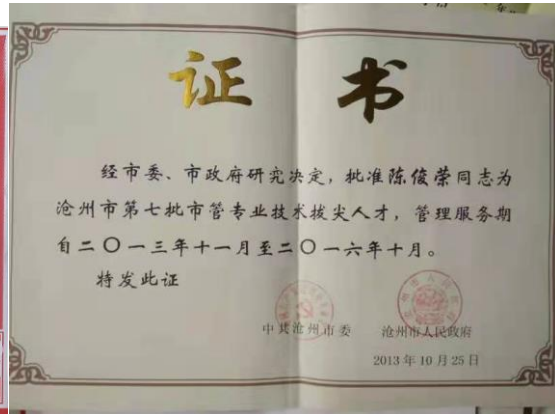 证 书
经市委、市政府研究决定，批准陈俊荣同志为
沧州市第七批市管专业技术拔尖人才，管理服务期
自二〇一三年十一月至二〇一六年十月。
特发此证
中共沧州市委 沧州市人民政府
2013年10月25日